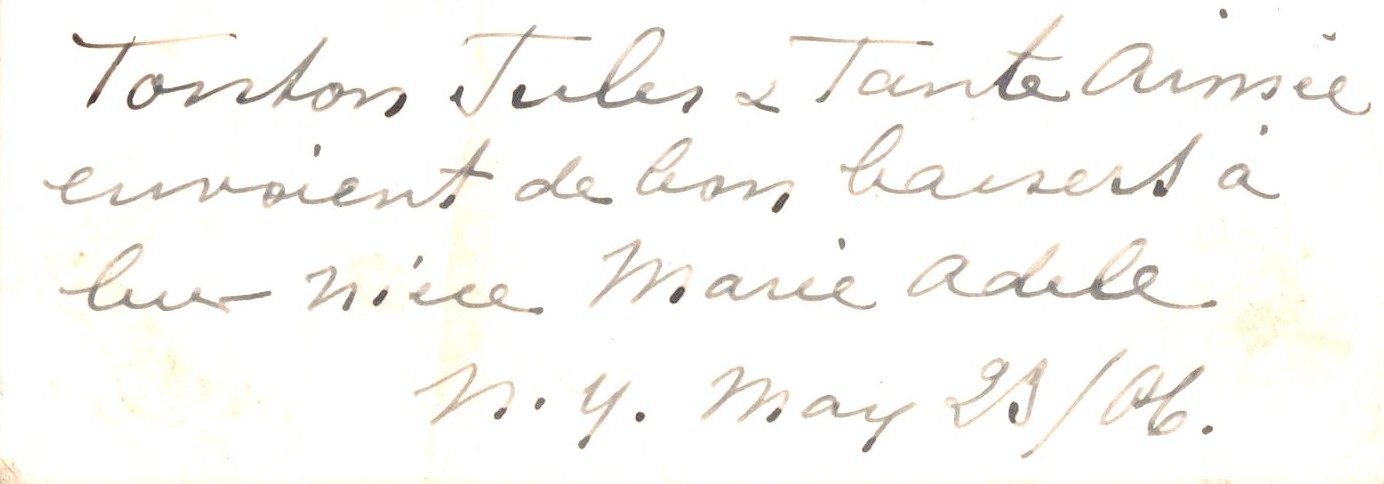 Tonton Jules & Tante Aimée
envoient de bons baisers à
leur nièce Marie Adele.
N. Y. May 23/06.